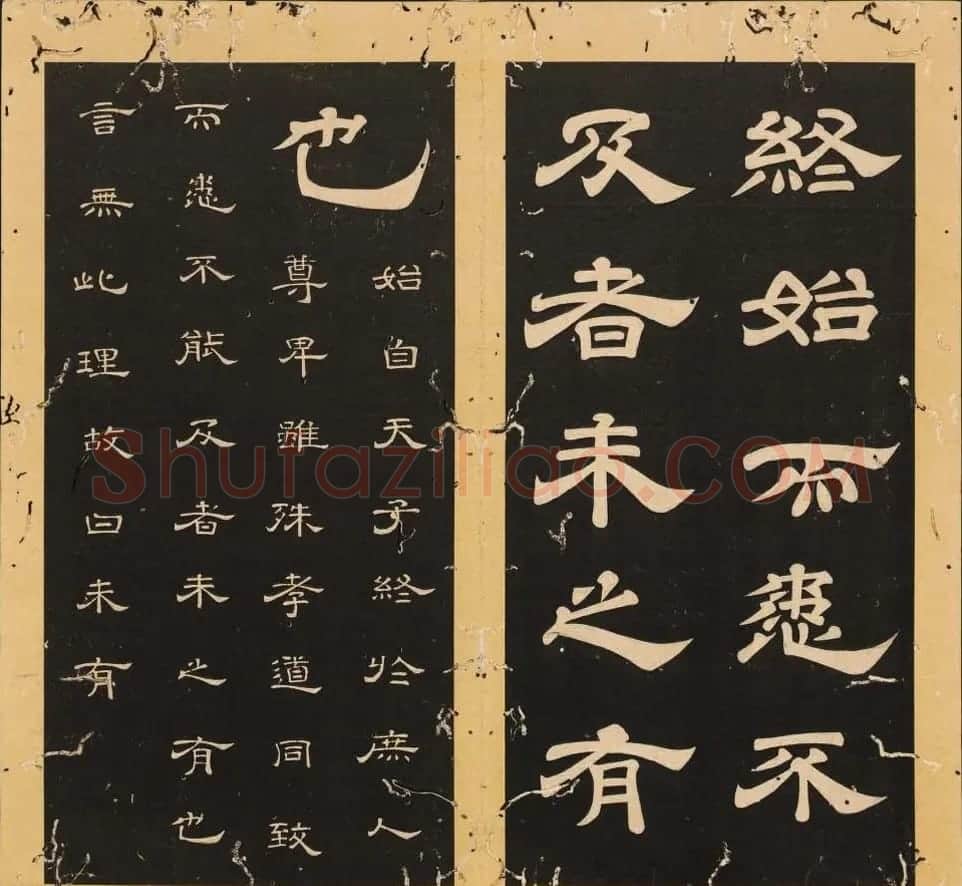 終始而患不
及者未之有
也
始自天子終於庶人
尊卑雖殊孝道同致
而患不能及者未之有也
言無此理故曰未有
Shufaziliao.COM